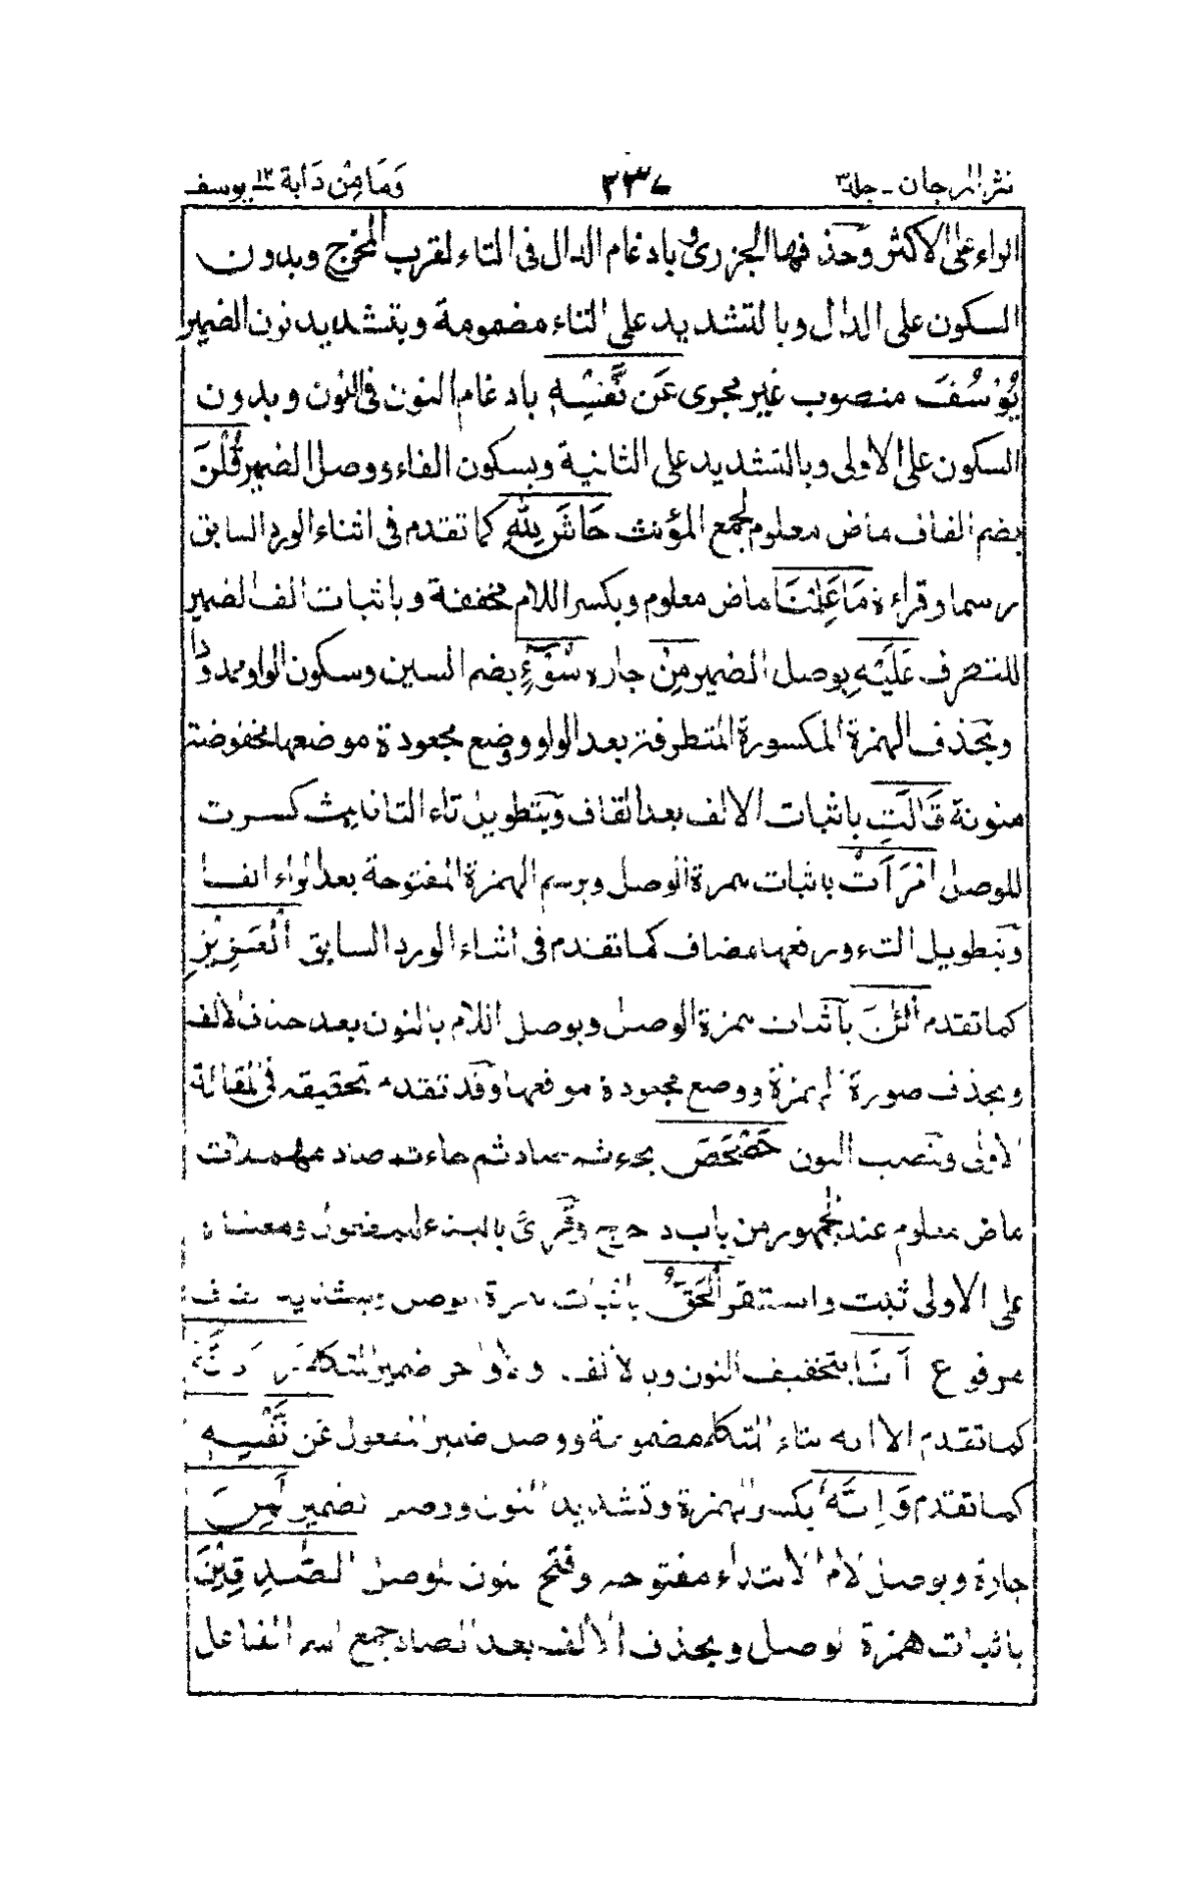 نثر المرجان - جلد ٣ ٣٣٧ وَمَا مِنْ دَابة ١٢ يوسف
الواو على الاكثر وحذفها الجزرى وبادغام الدال فى التاء لقرب المخرج وبدون
السكون على الدال وبالتشديد على التاء مضمومة وبتشديد نون الضمير
يُوْسُفَ منصوب غير مجرى عَن نَّفْسِهٖ بادغام النون فى النون وبدون
السكون على الاولى وبالتشديد على الثانية وبسكون الفاء ووصل الضمير قُلْنَ
بضم القاف ماض معلوم لجمع المؤنث حَاشَ لِلّٰهِ كما تقدم فى اثناء الورد السابق
رسما وقراءة مَا عَلِمْنَا ماض معلوم وبكسر اللام مخففة وباثبات الف الضمير
للتطرف عَلَيْهِ بوصل الضمير مِنْ جارة سُوْٓءٍ بضم السين وسكون الواو ممدودا
وبحذف الهمزة المكسورة المتطرفة بعد الواو ووضع مجعودة موضعها مخفوضة
منونة قَالَتِ باثبات الالف بعد القاف وبتطويل تاء التانيث كسرت
للوصل امْرَاَتُ باثبات همزة الوصل وبرسم الهمزة المفتوحة بعد الراء الفا
وبتطويل التاء ورفعها مضاف كما تقدم فى اثناء الورد السابق الْعَزِيْزِ
كما تقدم الْئٰنَ باثبات همزة الوصل وبوصل اللام بالنون بعد حذف الالف
وبحذف صورة الهمزة ووضع مجعودة موقعها وقد تقدم تحقيقه فى المقالة
الاولى وبنصب النون حَصْحَصَ بحاء ثم صاد ثم حاء ثم صاد مهملات
ماض معلوم عند الجمهور من باب دحرج وقُرِئَ بالبناء للمفعول ومعناه
على الاولى ثبت واستقر الْحَقُّ باثبات همزة الوصل وبتشديد القاف
مرفوع اَنَا بتخفيف النون وبالالف ضمير المتكلم رَاوَدْتُّهٗ
كما تقدم الا انه بتاء المتكلم مضمومة ووصل ضمير المفعول عَن نَّفْسِهٖ
كما تقدم وَاِنَّهٗ بكسر الهمزة وتشديد النون ووصل الضمير لَمِنَ
جارة وبوصل لام الابتداء مفتوحة وفتح النون للوصل الصّٰدِقِيْنَ
باثبات همزة الوصل وبحذف الالف بعد الصاد جمع اسم الفاعل